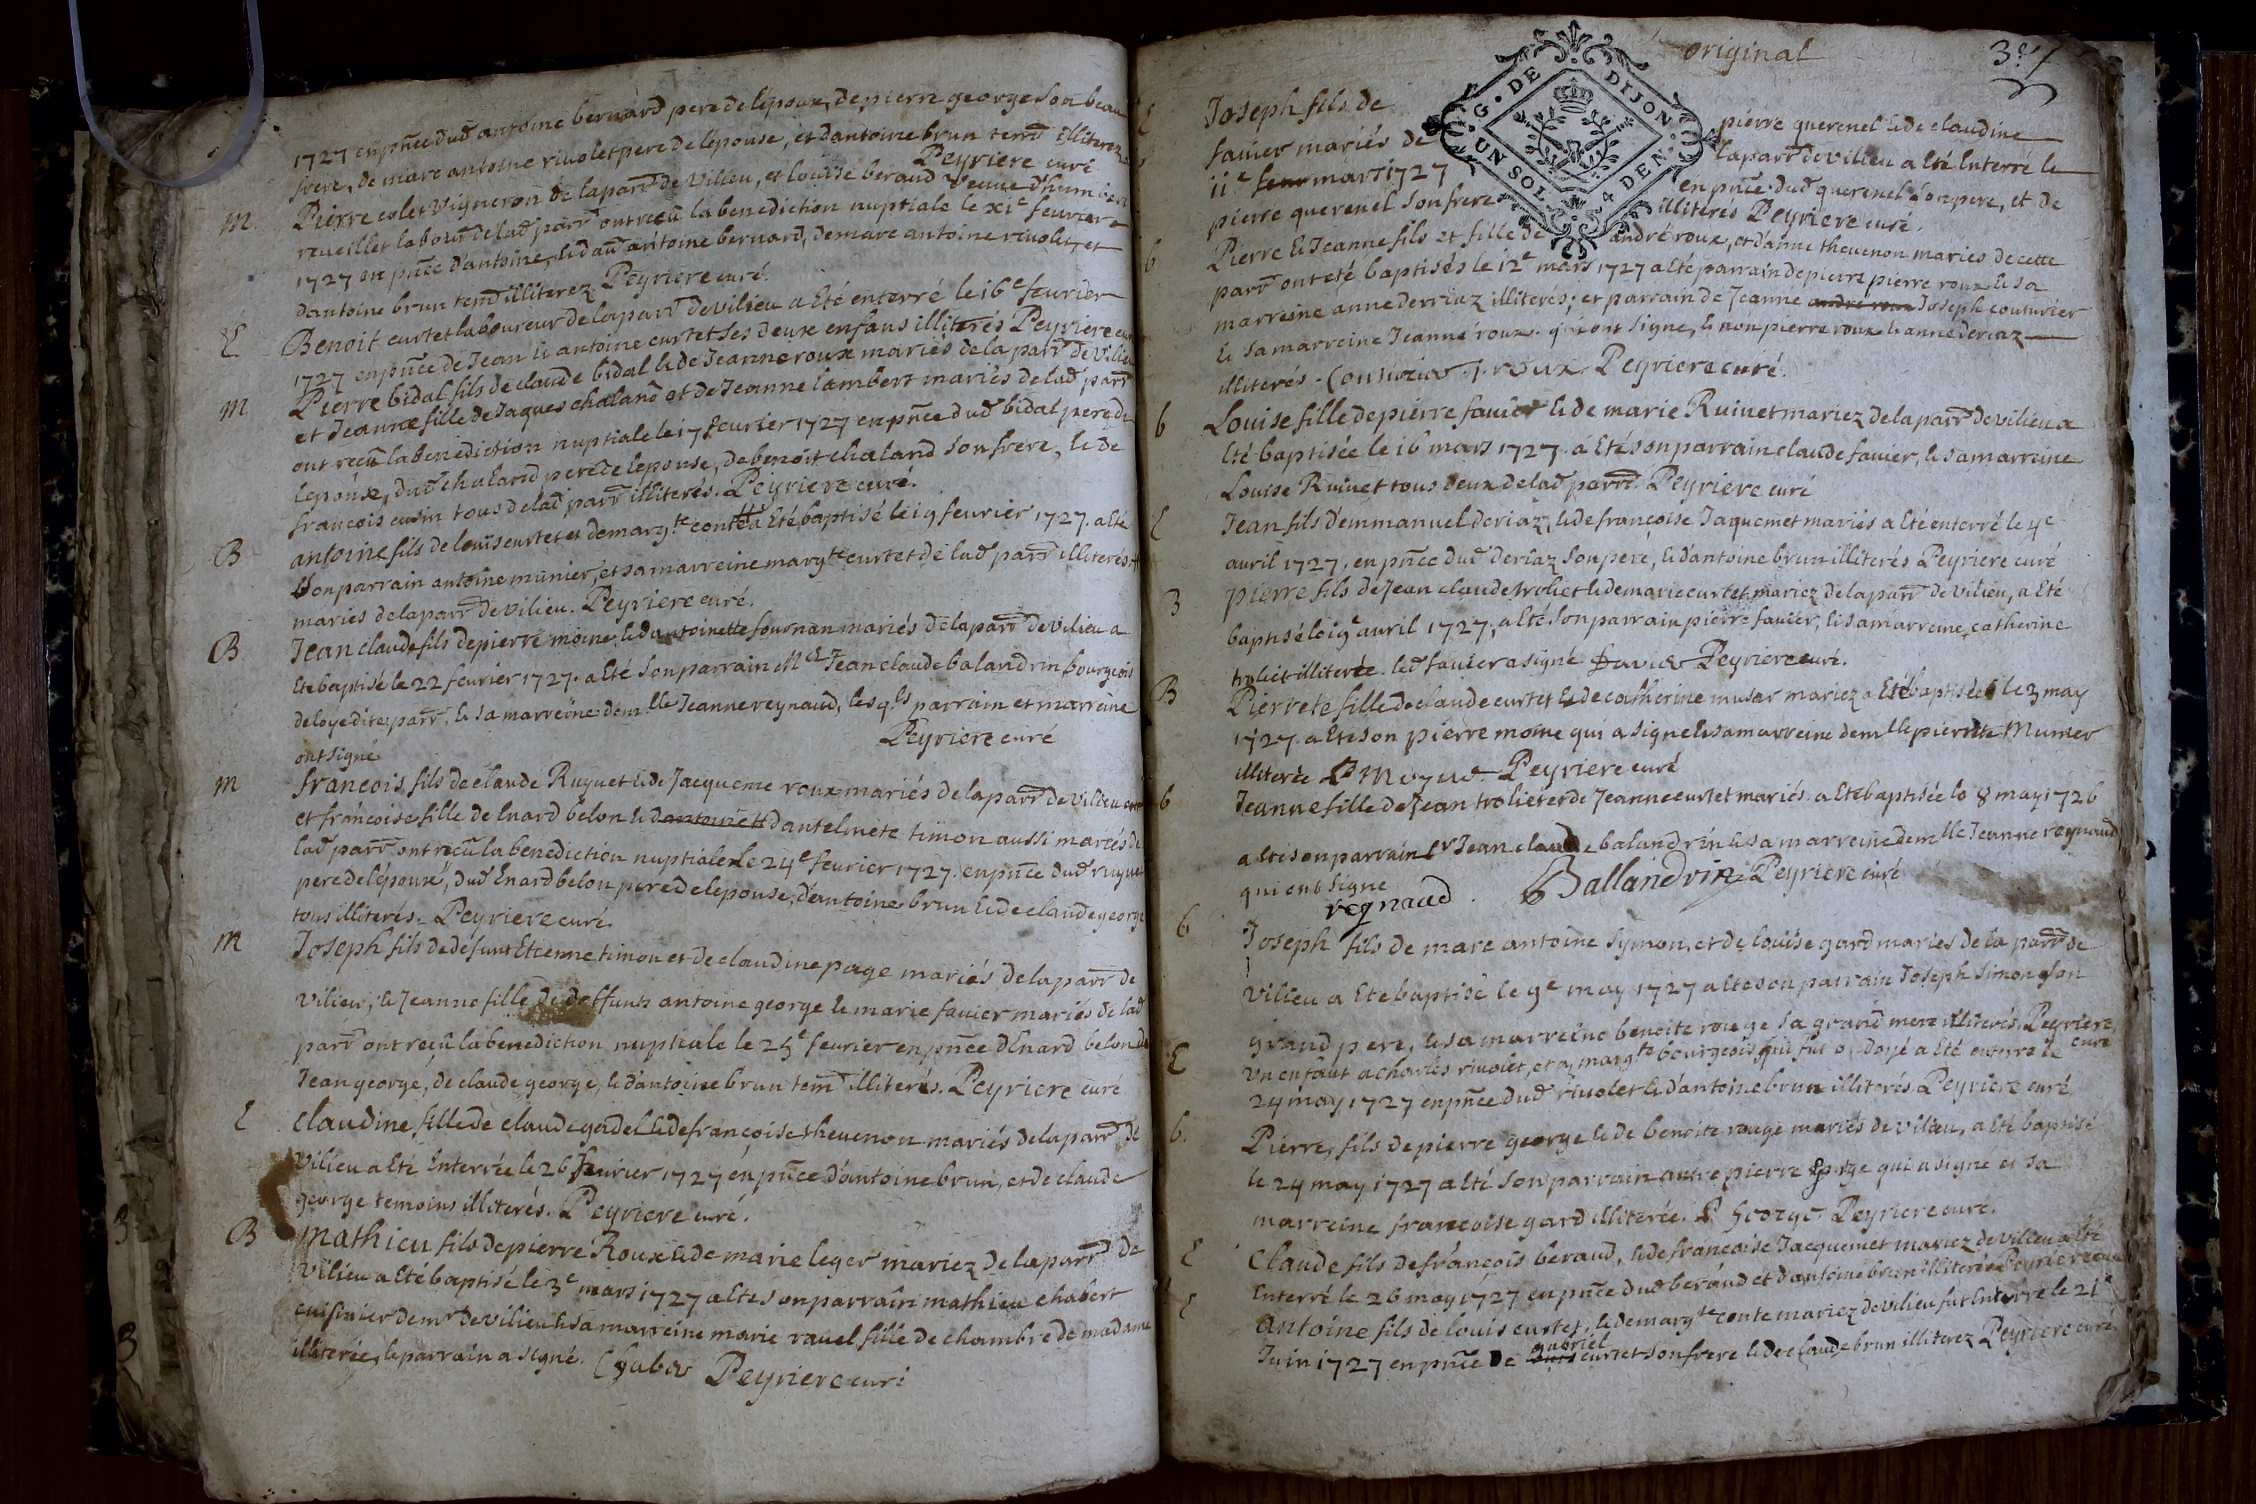 1727 en pñce dud antoine bernard pere de lepoux, de pierre george son beau
frere, de marc antoine riuolet pere de lepouse, et dantoine brun illiterez
Peyriere curé
M Pierre colet vigneron de la parr de Vilieu, et louise beraud veuue dhumbert
reueillet labour de lad parr ont reçu la benediction nuptiale le xie feurier
1727 en pñce d'antoine, & dud antoine bernard, de marc antoine riuolet, et
dantoine brun tem illiterez Peyriere curé.
E Benoit curtet laboureur de la parr de Vilieu a Eté enterré le 16e feurier
1727 en pñce de Jean & antoine curtet ses deux enfans illiterés Peyriere curé
M Pierre bidal fils de claude bidal & de Jeanne roux mariés de la parr de Vilieu
et Jeanne fille de Jaques chaland et de Jeanne lambert mariés de lad parr
ont reçu la benediction nuptiale le 17 feurier 1727 en pñce dud bidal pere de
lepoux, dud chaland pere de lepouse, de benoit chaland son frere, & de
francois cusin tous de lad parr illiterés. Peyriere curé.
B antoine fils de louis curtet et de margte conte a Eté baptisé le 19 feurier 1727. a eté
son parrain antoine munier, et sa marreine margte curtet de lad parr illiterés #
mariés de la parr de Vilieu. Peyriere curé.
B Jean claude fils de pierre moine & dantoinette fournan mariés de la parr de Vilieu a
Eté baptisé le 22 feurier 1727. a Eté son parrain Mr Jean claude balandrin bourgeois
de loye dite parr. & sa marreine demlle Jeanne reynaud, les qls parrain et marreine
ont signé Peyriere curé
M francois fils de claude Ruynet & de Jacqueme roux mariés de la parr de Vilieu
et francoise fille de Enard belon & dantoinett dantelmete timon aussi mariés de
lad parr ont reçu la benediction nuptiale le 24e feurier 1727. en pñce dud ruynet
pere de lépoux, dud Enard belon pere de lepouse, dantoine brun & de claude george
tous illiterés. Peyriere curé.
M Joseph fils de defunt Etienne timon et de claudine page mariés de la parr de
Vilieu, & Jeanne fille de deffunts antoine george & marie fauier mariés de lad
parr ont reçu la benediction nuptiale le 25e feurier en pñce dEnard belon de
Jean george, de claude george, & d'antoine brun tem illiterés. Peyriere curé
E Claudine fille de claude gadel & de francoise theuenon mariés de la parr de
Vilieu a Eté Enterrée le 26 feurier 1727 en pñce d'antoine brun, et de claude
george temoins illiterés. Peyriere curé.
B Mathieu fils de pierre Roux & de marie leger mariez de la parr de
Vilieu a Eté baptisé le 3e mars 1727 a Eté son parrain mathieu chabert
cuisinier de mr de Vilieu & sa marreine marie rauel fille de chambre de madame
illiterée, le parrain a signé. Chaber Peyriere curé
original 3e
G. DE DIJON
UN SOL. 4 DEN.
E Joseph fils de pierre querenel & de claudine
fauier mariés de la parr de Vilieu a Eté Enterré le
11e feur mars 1727 en pñce dud querenel son pere, et de
pierre querenel son frere illiterés Peyriere curé.
b Pierre & Jeanne fils et fille de andré roux, et d'anne theuenon mariés de cette
parr ont eté baptisés le 12e mars 1727 a Eté parrain de pierre pierre roux & sa
marreine anne derriaz illiterés; et parrain de Jeanne andre roux Joseph couturier
& sa marreine Jeanne roux. qui ont signé, & non pierre roux & anne deriaz
illiterés. Couturier J. roux Peyriere curé.
b Louise fille de pierre fauier & de marie Ruinet mariez de la parr de Vilieu a
Eté baptisée le 16 mars 1727. a Eté son parrain claude fauier, & sa marreine
Louise Ruinet tous deux de lad parr. Peyriere curé
E Jean fils d'emmanuel deriaz, & de françoise Jaquemet mariés a Eté enterré le 4e
auril 1727, en pñce dud deriaz son pere, & d'antoine brun illiterés Peyriere curé
B pierre fils de Jean claude troliet & de marie curtet mariez de la parr de Vilieu, a Eté
baptisé le 19e auril 1727, a Eté son parrain pierre fauier, & sa marreine catherine
troliet illiterée. led fauier a signé Favier Peyriere curé.
B Pierrete fille de claude curtet & de catherine musar mariez a Eté baptisée le 3 may
1727. a Eté son pierre moine qui a signé & sa marreine demlle pierrete Munier
illiterée P Moyne Peyriere curé
b Jeanne fille de Jean troliet et de Jeanne curtet mariés. a Eté baptisée le 8 may 1726
a Eté son parrain Sr Jean claude balandrin & sa marreine demlle Jeanne reynaud
qui ont signé Ballandrin Peyriere curé
reynaud
b Joseph fils de marc antoine Symon, et de louise gard mariés de la parr de
Vilieu a Eté baptisé le 9e may 1727 a Eté son parrain Joseph simon son
grand pere, & sa marreine benoite rouge sa grand mere illiterés. Peyriere curé
E Vn enfant a charles riuolet, et a margte bourgeois qui fut ondoyé a Eté enterré le
24 may 1727 en pñce dud riuolet & d'antoine brun illiterés. Peyriere curé
b. Pierre, fils de pierre george & de benoite rouge mariés de Vilieu, a Eté baptisé
le 24 may 1727 a Eté son parrain autre pierre george qui a signé et sa
marreine francoise gard illiterée. P George Peyriere curé.
E Claude fils de françois beraud, & de françoise Jacquemet mariez de Vilieu a Eté
Enterré le 26 may 1727 en pñce dud beraud et d'antoine brun illiterés Peyriere curé
E Antoine fils de louis curtet, & de margte conte mariez de Vilieu fut Enterré le 21e
Juin 1727 en pñce de louis gabriel curtet son frere & de claude brun illiterez Peyriere curé